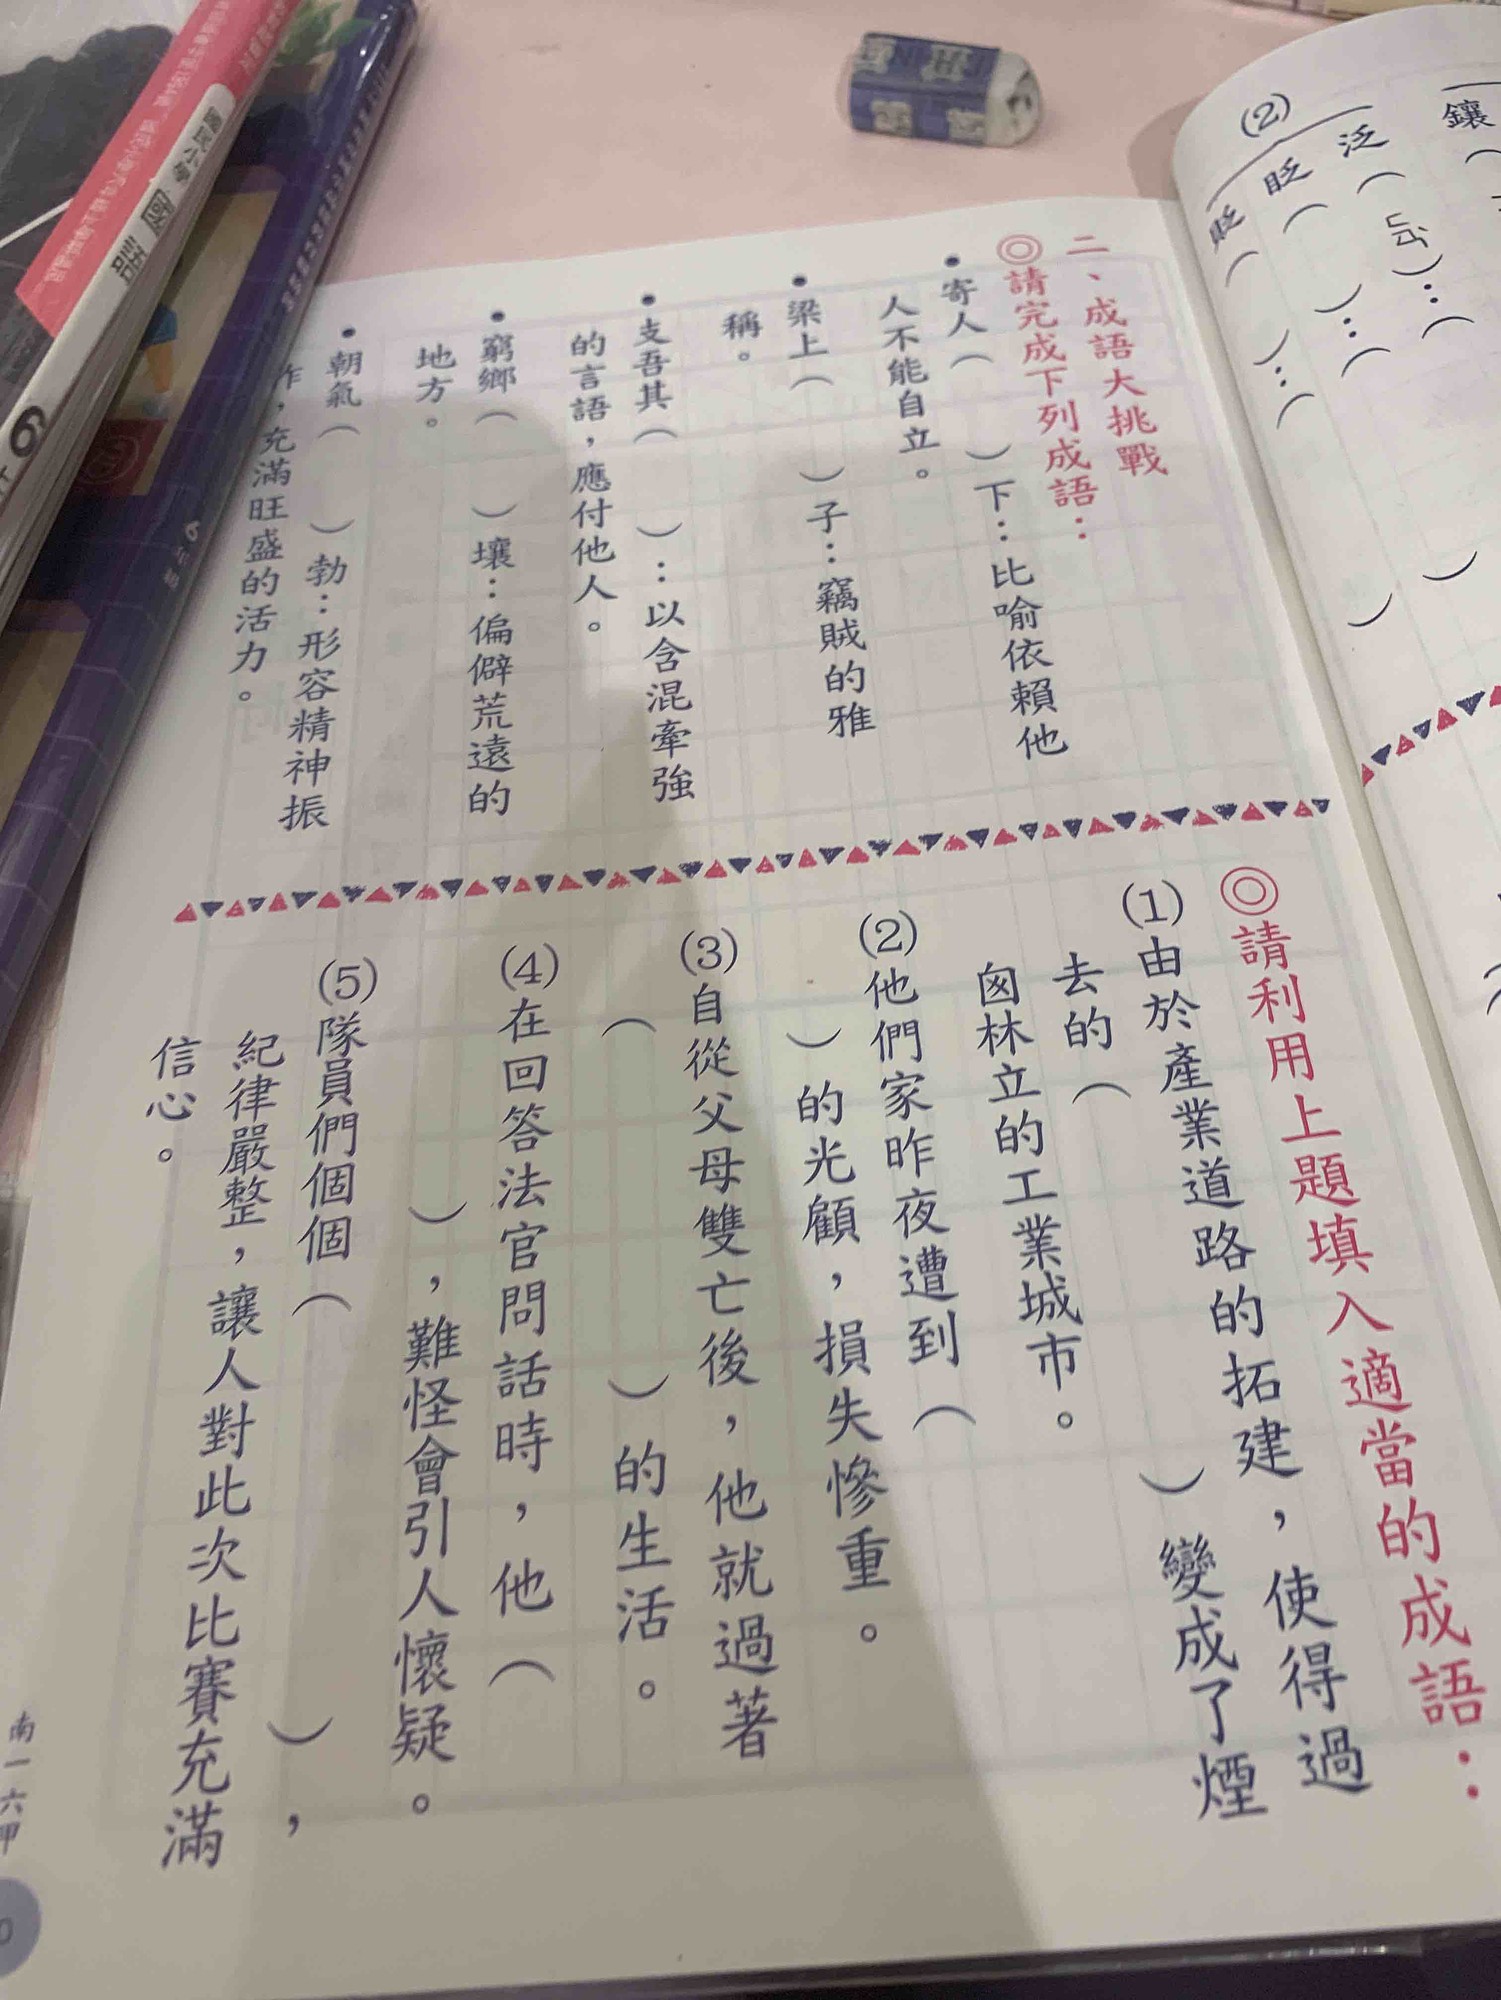 鑲（
(2)
泛（ㄈㄢˋ）：（ ）
眨（ ）：（ ）
貶（ ）：（
二、成語大挑戰
◎請完成下列成語：
•寄人（ ）下：比喻依賴他
人不能自立。
•梁上（ ）子：竊賊的雅
稱。
•支吾其（ ）：以含混牽強
的言語，應付他人。
•窮鄉（ ）壤：偏僻荒遠的
地方。
•朝氣（ ）勃：形容精神振
作，充滿旺盛的活力。
◎請利用上題填入適當的成語：
(1)由於產業道路的拓建，使得過
去的（ ）變成了煙
囪林立的工業城市。
(2)他們家昨夜遭到（
）的光顧，損失慘重。
(3)自從父母雙亡後，他就過著
（ ）的生活。
(4)在回答法官問話時，他（
），難怪會引人懷疑。
(5)隊員們個個（ ），
紀律嚴整，讓人對此次比賽充滿
信心。
南一六甲
國民小學 國語
6